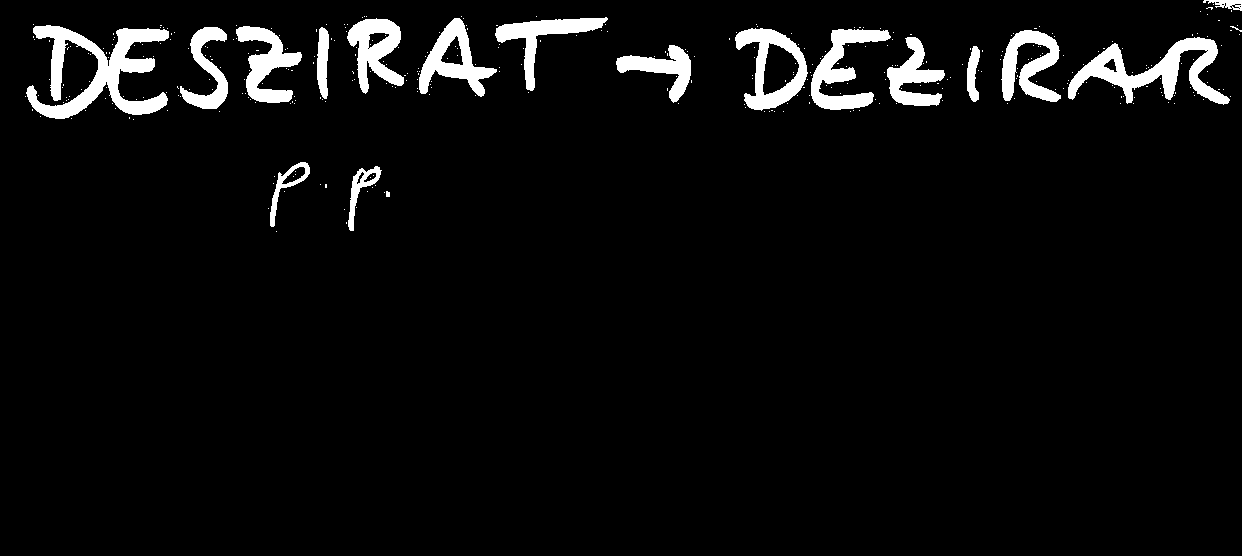 DESZIRAT → DEZIRAR
p.p.